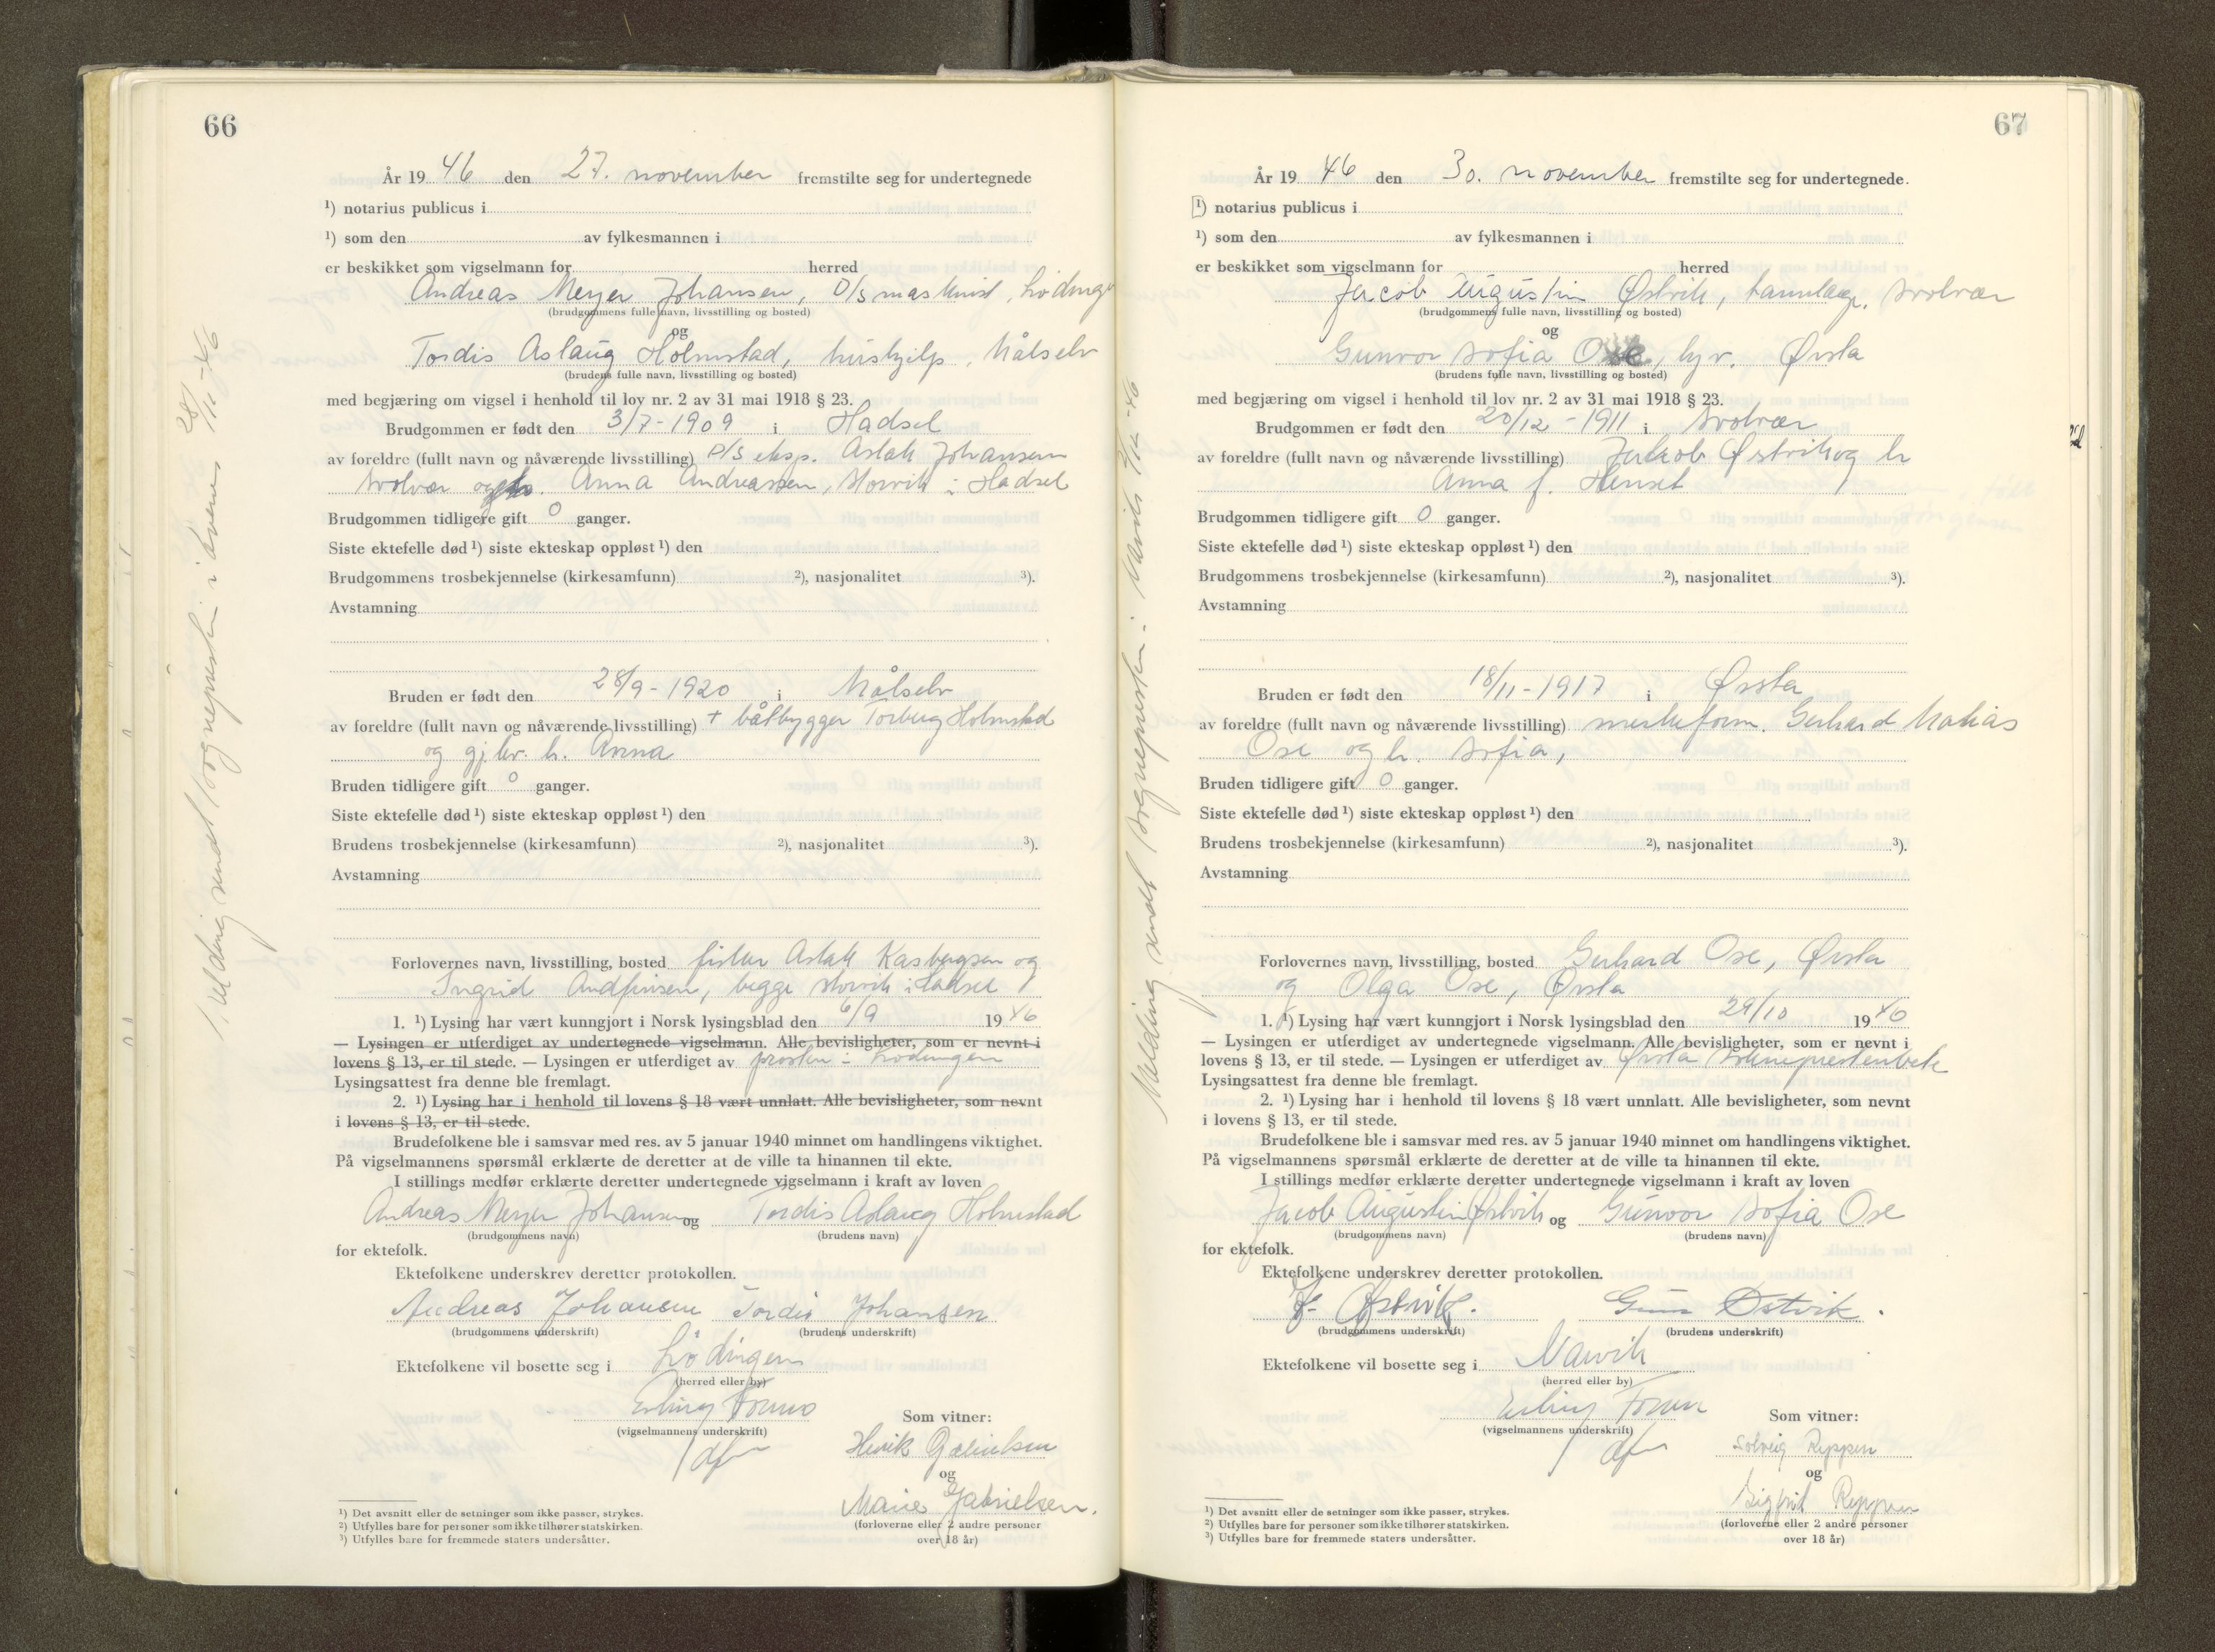 66
År 19 46 den 27. november fremstilte seg for undertegnede
¹) notarius publicus i
¹) som den av fylkesmannen i
er beskikket som vigselmann for herred
Andreas Meyer Johansen, D/s maskinist, Lødingen
(brudgommens fulle navn, livsstilling og bosted)
og
Tordis Aslaug Holmstad, hushjelp, Målselv
(brudens fulle navn, livsstilling og bosted)
med begjæring om vigsel i henhold til lov nr. 2 av 31 mai 1918 § 23.
Brudgommen er født den 3/7-1909 i Hadsel
av foreldre (fullt navn og nåværende livsstilling) D/S eksp. Aslak Johansen
Svolvær og Anna Andreassen, Storvik i Hadsel
Brudgommen tidligere gift 0 ganger.
Siste ektefelle død ¹) siste ekteskap oppløst ¹) den
Brudgommens trosbekjennelse (kirkesamfunn) ²), nasjonalitet ³).
Avstamning
Bruden er født den 28/9-1920 i Målselv
av foreldre (fullt navn og nåværende livsstilling) + båtbygger Torberg Holmstad
og gjlev. h. Anna
Bruden tidligere gift 0 ganger.
Siste ektefelle død ¹) siste ekteskap oppløst ¹) den
Brudens trosbekjennelse (kirkesamfunn) ²), nasjonalitet ³).
Avstamning
Forlovernes navn, livsstilling, bosted fisker Aslak Kasbergsen og
Ingrid Andfinsen, begge Storvik i Hadsel
1. ¹) Lysing har vært kunngjort i Norsk lysingsblad den 6/9 19 46
— Lysingen er utferdiget av undertegnede vigselmann. Alle bevisligheter, som er nevnt i
lovens § 13, er til stede. — Lysingen er utferdiget av prosten i Lødingen
Lysingsattest fra denne ble fremlagt.
2. ¹) Lysing har i henhold til lovens § 18 vært unnlatt. Alle bevisligheter, som nevnt
i lovens § 13, er til stede.
Brudefolkene ble i samsvar med res. av 5 januar 1940 minnet om handlingens viktighet.
På vigselmannens spørsmål erklærte de deretter at de ville ta hinannen til ekte.
I stillings medfør erklærte deretter undertegnede vigselmann i kraft av loven
Andreas Meyer Johansen og Tordis Aslaug Holmstad
(brudgommens navn) (brudens navn)
for ektefolk.
Ektefolkene underskrev deretter protokollen.
Andreas Johansen Tordis Johansen
(brudgommens underskrift) (brudens underskrift)
Ektefolkene vil bosette seg i Lødingen
(herred eller by)
Erling
(vigselmannens underskrift)
Som vitner:
Henrik Gabrielsen
og
Marie Gabrielsen.
(forloverne eller 2 andre personer
over 18 år)
¹) Det avsnitt eller de setninger som ikke passer, strykes.
²) Utfylles bare for personer som ikke tilhører statskirken.
³) Utfylles bare for fremmede staters undersåtter.
Melding sendt sognepresten i 28/11-46
67
År 19 46 den 30. november fremstilte seg for undertegnede.
¹) notarius publicus i
¹) som den av fylkesmannen i
er beskikket som vigselmann for herred
Jacob Augustin Østvik, tannlege, Svolvær
(brudgommens fulle navn, livsstilling og bosted)
og
Gunvor Sofia Ose, Ørsta
(brudens fulle navn, livsstilling og bosted)
med begjæring om vigsel i henhold til lov nr. 2 av 31 mai 1918 § 23.
Brudgommen er født den 20/12-1911 i Svolvær
av foreldre (fullt navn og nåværende livsstilling) Jakob Østvik og h
Anna f. Henset
Brudgommen tidligere gift 0 ganger.
Siste ektefelle død ¹) siste ekteskap oppløst ¹) den
Brudgommens trosbekjennelse (kirkesamfunn) ²), nasjonalitet ³).
Avstamning
Bruden er født den 18/11-1917 i Ørsta
av foreldre (fullt navn og nåværende livsstilling) Gerhard Matias
Ose og h. Sofia,
Bruden tidligere gift 0 ganger.
Siste ektefelle død ¹) siste ekteskap oppløst ¹) den
Brudens trosbekjennelse (kirkesamfunn) ²), nasjonalitet ³).
Avstamning
Forlovernes navn, livsstilling, bosted Gerhard Ose, Ørsta
og Olga Ose, Ørsta
1. ¹) Lysing har vært kunngjort i Norsk lysingsblad den 29/10 19 46
— Lysingen er utferdiget av undertegnede vigselmann. Alle bevisligheter, som er nevnt i
lovens § 13, er til stede. — Lysingen er utferdiget av Ørsta
Lysingsattest fra denne ble fremlagt.
2. ¹) Lysing har i henhold til lovens § 18 vært unnlatt. Alle bevisligheter, som nevnt
i lovens § 13, er til stede.
Brudefolkene ble i samsvar med res. av 5 januar 1940 minnet om handlingens viktighet.
På vigselmannens spørsmål erklærte de deretter at de ville ta hinannen til ekte.
I stillings medfør erklærte deretter undertegnede vigselmann i kraft av loven
Jacob Augustin Østvik og Gunvor Sofia Ose
(brudgommens navn) (brudens navn)
for ektefolk.
Ektefolkene underskrev deretter protokollen.
J. Østvik. Gunvor Østvik.
(brudgommens underskrift) (brudens underskrift)
Ektefolkene vil bosette seg i Narvik
(herred eller by)
Erling
(vigselmannens underskrift)
Som vitner:
Solveig Reppen
og
Sigfrid Reppen
(forloverne eller 2 andre personer
over 18 år)
¹) Det avsnitt eller de setninger som ikke passer, strykes.
²) Utfylles bare for personer som ikke tilhører statskirken.
³) Utfylles bare for fremmede staters undersåtter.
Melding sendt sognepresten i Narvik